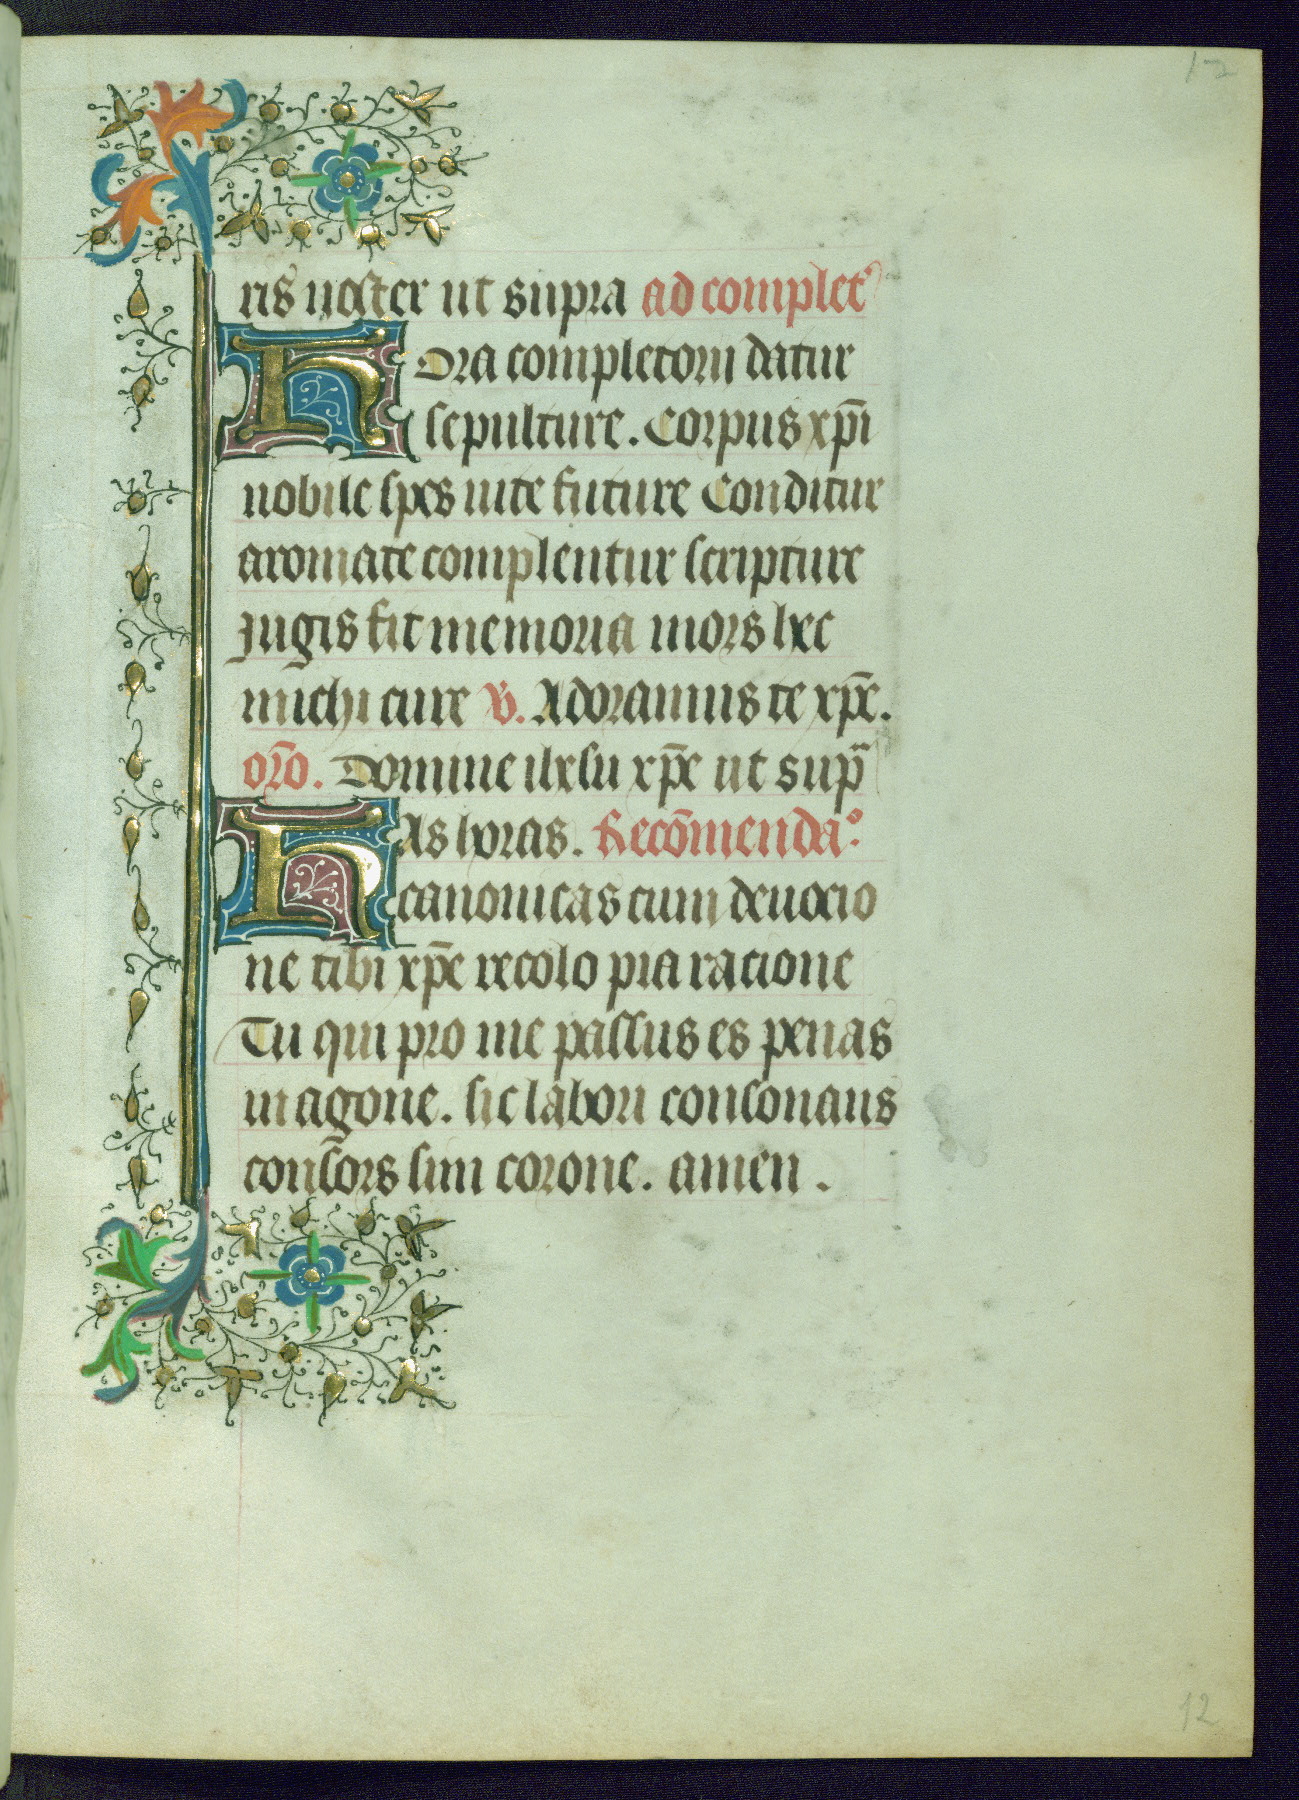 12
ris noster ut supra ad complet
Hora completorii datur
sepulture. Corpus xp̄i
nobile spes uite future Conditur
aromate complentur scripture
Jugis sit memoria mors hec
michi cure V. Adoramus te xp̄e.
oro̅. Domine ihesu xp̄e ut sup̄
Has horas. Reco̅menda°
canonicas cum deuocio
ne tibi xp̄e recolo pia ratione
Tu qui pro me passus es penas
in agone. sic labori consonans
consors sim corone. amen.
12